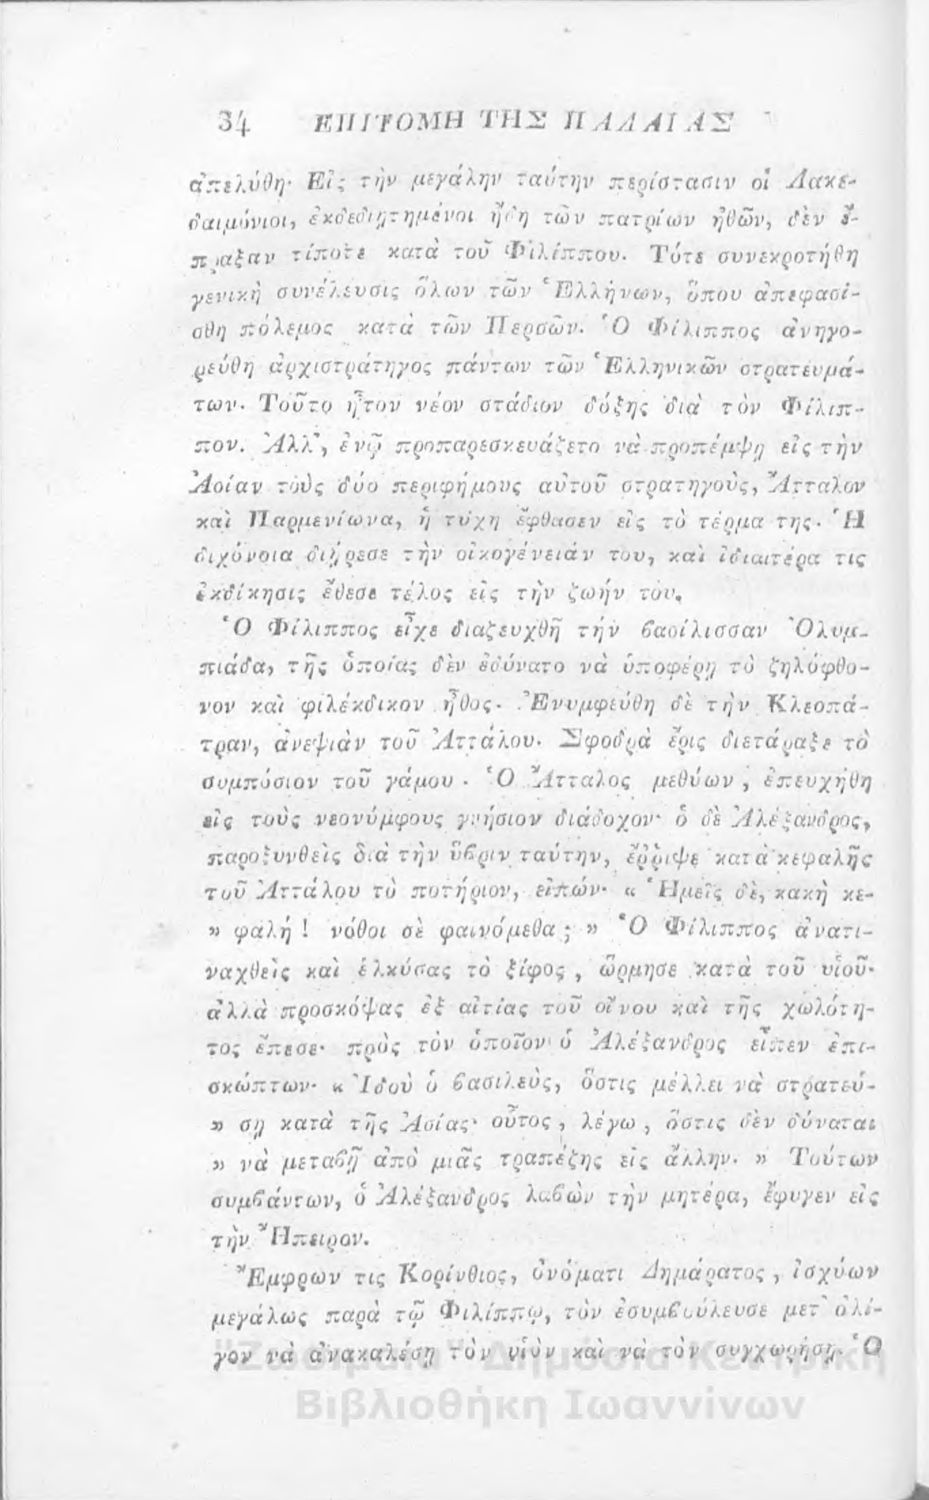 34 ΕΠΙΤΟΜΗ ΤΗΣ ΠΑΛΑΙΑΣ
ἀπελύθη· Εἰς τὴν μεγάλην ταύτην περίστασιν οἱ Λακε-
δαιμόνιοι, ἐκδεδιῃτημένοι ἤδη τῶν πατρίων ἠθῶν, δὲν ἔ-
πραξαν τίποτε κατὰ τοῦ Φιλίππου. Τότε συνεκροτήθη
γενικὴ συνέλευσις ὅλων τῶν Ἑλλήνων, ὅπου ἀπεφασί-
σθη πόλεμος κατὰ τῶν Περσῶν. Ὁ Φίλιππος ἀνηγο-
ρεύθη ἀρχιστράτηγος πάντων τῶν Ἑλληνικῶν στρατευμά-
των. Τοῦτο ἦτον νέον στάδιον δόξης διὰ τὸν Φίλιπ-
πον. Ἀλλ', ἐνῷ προπαρεσκευάζετο νὰ προπέμψῃ εἰς τὴν
Ἀσίαν τοὺς δύο περιφήμους αὑτοῦ στρατηγοὺς, Ἄτταλον
καὶ Παρμενίωνα, ἡ τύχη ἔφθασεν εἰς τὸ τέρμα της. Ἡ
διχόνοια διῄρεσε τὴν οἰκογένειάν του, καὶ ἰδιαιτέρα τις
ἐκδίκησις ἔθεσε τέλος εἰς τὴν ζωήν του.
Ὁ Φίλιππος εἶχε διαζευχθῆ τὴν βασίλισσαν Ὀλυμ-
πιάδα, τῆς ὁποίας δὲν ἐδύνατο νὰ ὑποφέρῃ τὸ ζηλόφθο-
νον καὶ φιλέκδικον ἦθος. Ἐνυμφεύθη δὲ τὴν Κλεοπά-
τραν, ἀνεψιὰν τοῦ Ἀττάλου. Σφοδρὰ ἔρις διετάραξε τὸ
συμπόσιον τοῦ γάμου. Ὁ Ἄτταλος μεθύων, ἐπευχήθη
εἰς τοὺς νεονύμφους γνήσιον διάδοχον· ὁ δὲ Ἀλέξανδρος,
παροξυνθεὶς διὰ τὴν ὕβριν ταύτην, ἔῤῥιψε κατὰ κεφαλῆς
τοῦ Ἀττάλου τὸ ποτήριον, εἰπών· « Ἡμεῖς δὲ, κακὴ κε-
» φαλή! νόθοι σὲ φαινόμεθα; » Ὁ Φίλιππος ἀνατι-
ναχθεὶς καὶ ἑλκύσας τὸ ξίφος, ὥρμησε κατὰ τοῦ υἱοῦ·
ἀλλὰ προσκόψας ἐξ αἰτίας τοῦ οἴνου καὶ τῆς χωλότη-
τος ἔπεσε· πρὸς τὸν ὁποῖον ὁ Ἀλέξανδρος εἶπεν ἐπι-
σκώπτων· « Ἰδοὺ ὁ βασιλεὺς, ὅστις μέλλει νὰ στρατεύ-
» σῃ κατὰ τῆς Ἀσίας· οὗτος, λέγω, ὅστις δὲν δύναται
» νὰ μεταβῇ ἀπὸ μιᾶς τραπέζης εἰς ἄλλην. » Τούτων
συμβάντων, ὁ Ἀλέξανδρος λαβὼν τὴν μητέρα, ἔφυγεν εἰς
τὴν Ἤπειρον.
Ἔμφρων τις Κορίνθιος, ὀνόματι Δημάρατος, ἰσχύων
μεγάλως παρὰ τῷ Φιλίππῳ, τὸν ἐσυμβούλευσε μετ' ὀλί-
γον νὰ ἀνακαλέσῃ τὸν υἱὸν καὶ νὰ τὸν συγχωρήσῃ. Ὁ
"Ζωσιμαία" Δημόσια Κεντρική
Βιβλιοθήκη Ιωαννίνων